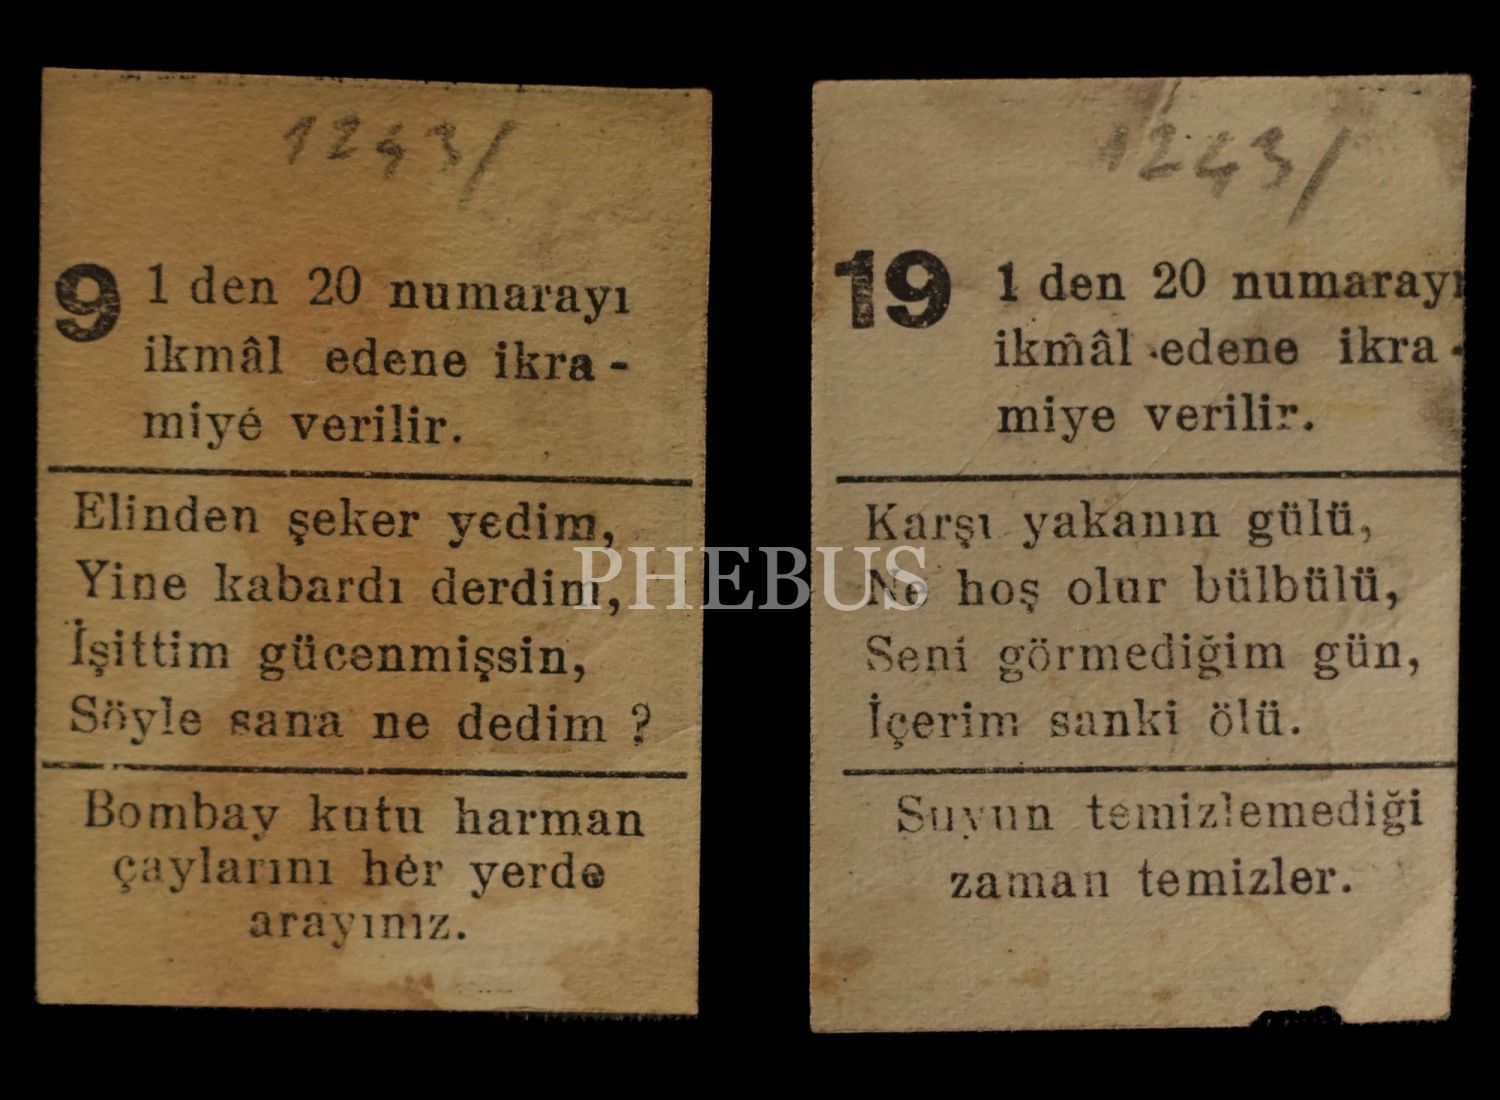 1243/
9
1 den 20 numarayı
ikmâl edene ikra-
miye verilir.
Elinden şeker yedim,
Yine kabardı derdim,
İşittim gücenmişsin,
Söyle sana ne dedim ?
Bombay kutu harman
çaylarını her yerde
arayınız.
1243/
19
1 den 20 numarayı
ikmâl edene ikra-
miye verilir.
Karşı yakanın gülü,
Ne hoş olur bülbülü,
Seni görmediğim gün,
İçerim sanki ölü.
Suyun temizlemediği
zaman temizler.
PHEBUS